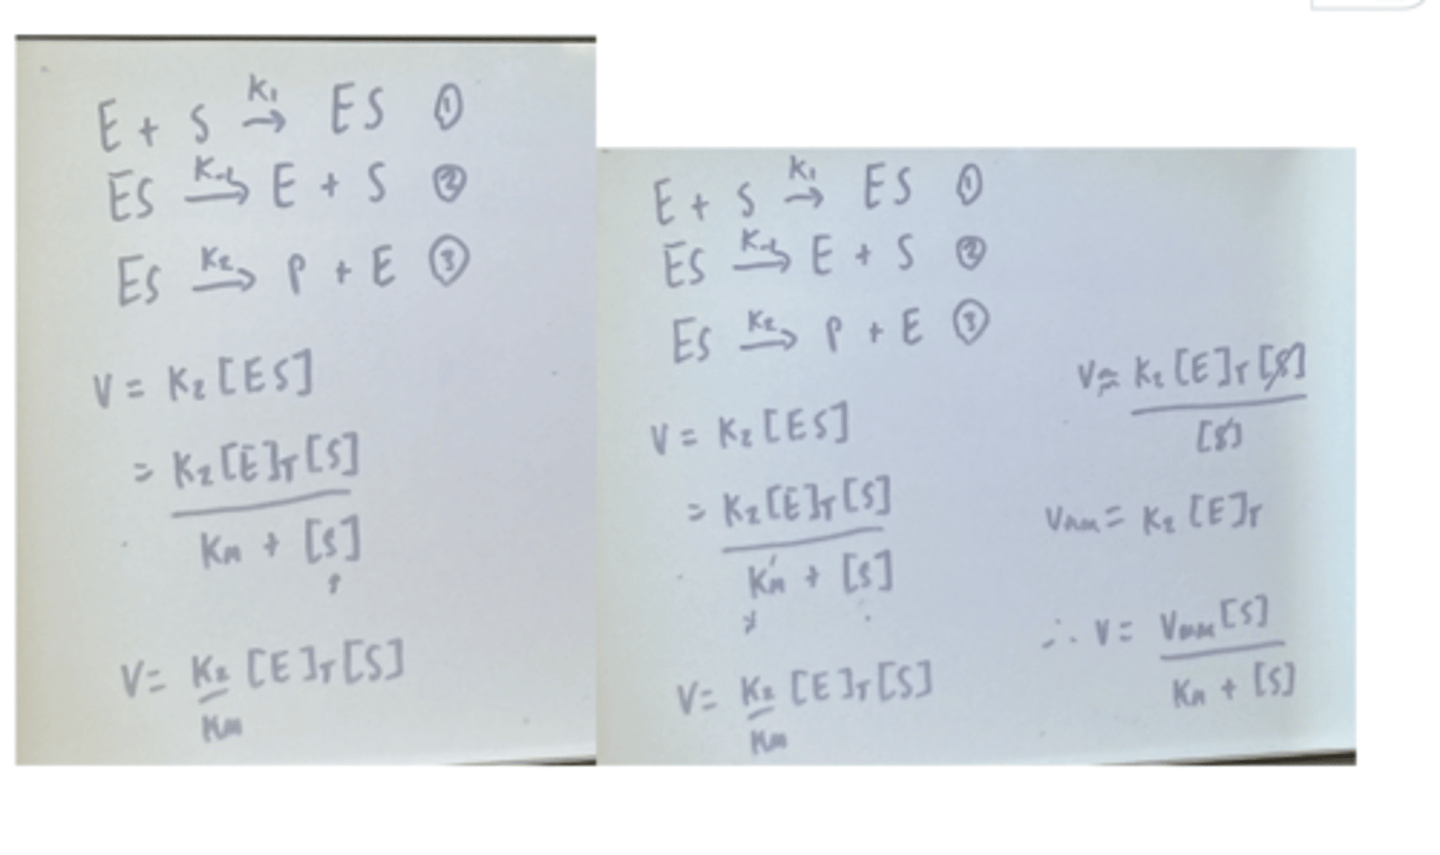 E + S →k₁ ES ①
ES →k₋₁ E + S ②
ES →k₂ P + E ③
V = k₂ [ES]
= k₂[E]T[S]
Km + [S]
V = k₂ [E]T[S]
Km
E + S →k₁ ES ①
ES →k₋₁ E + S ②
ES →k₂ P + E ③
V = k₂ [ES]
= k₂[E]T[S]
Km + [S]
V = k₂ [E]T[S]
Km
V ≈ k₂ [E]T [S]
[S]
Vmax = k₂ [E]T
∴ V = Vmax [S]
Km + [S]